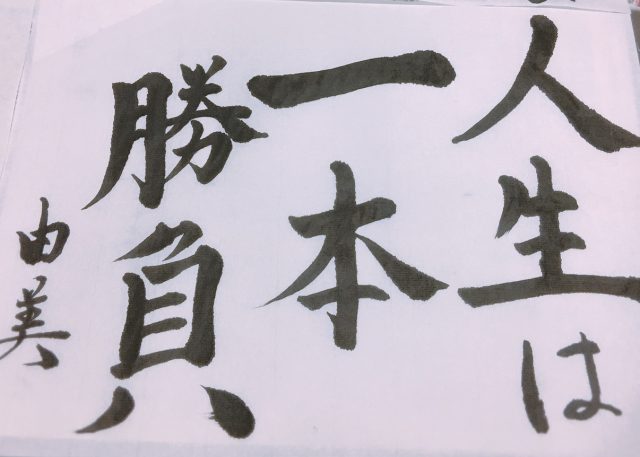 人生は
一本
勝負
由美